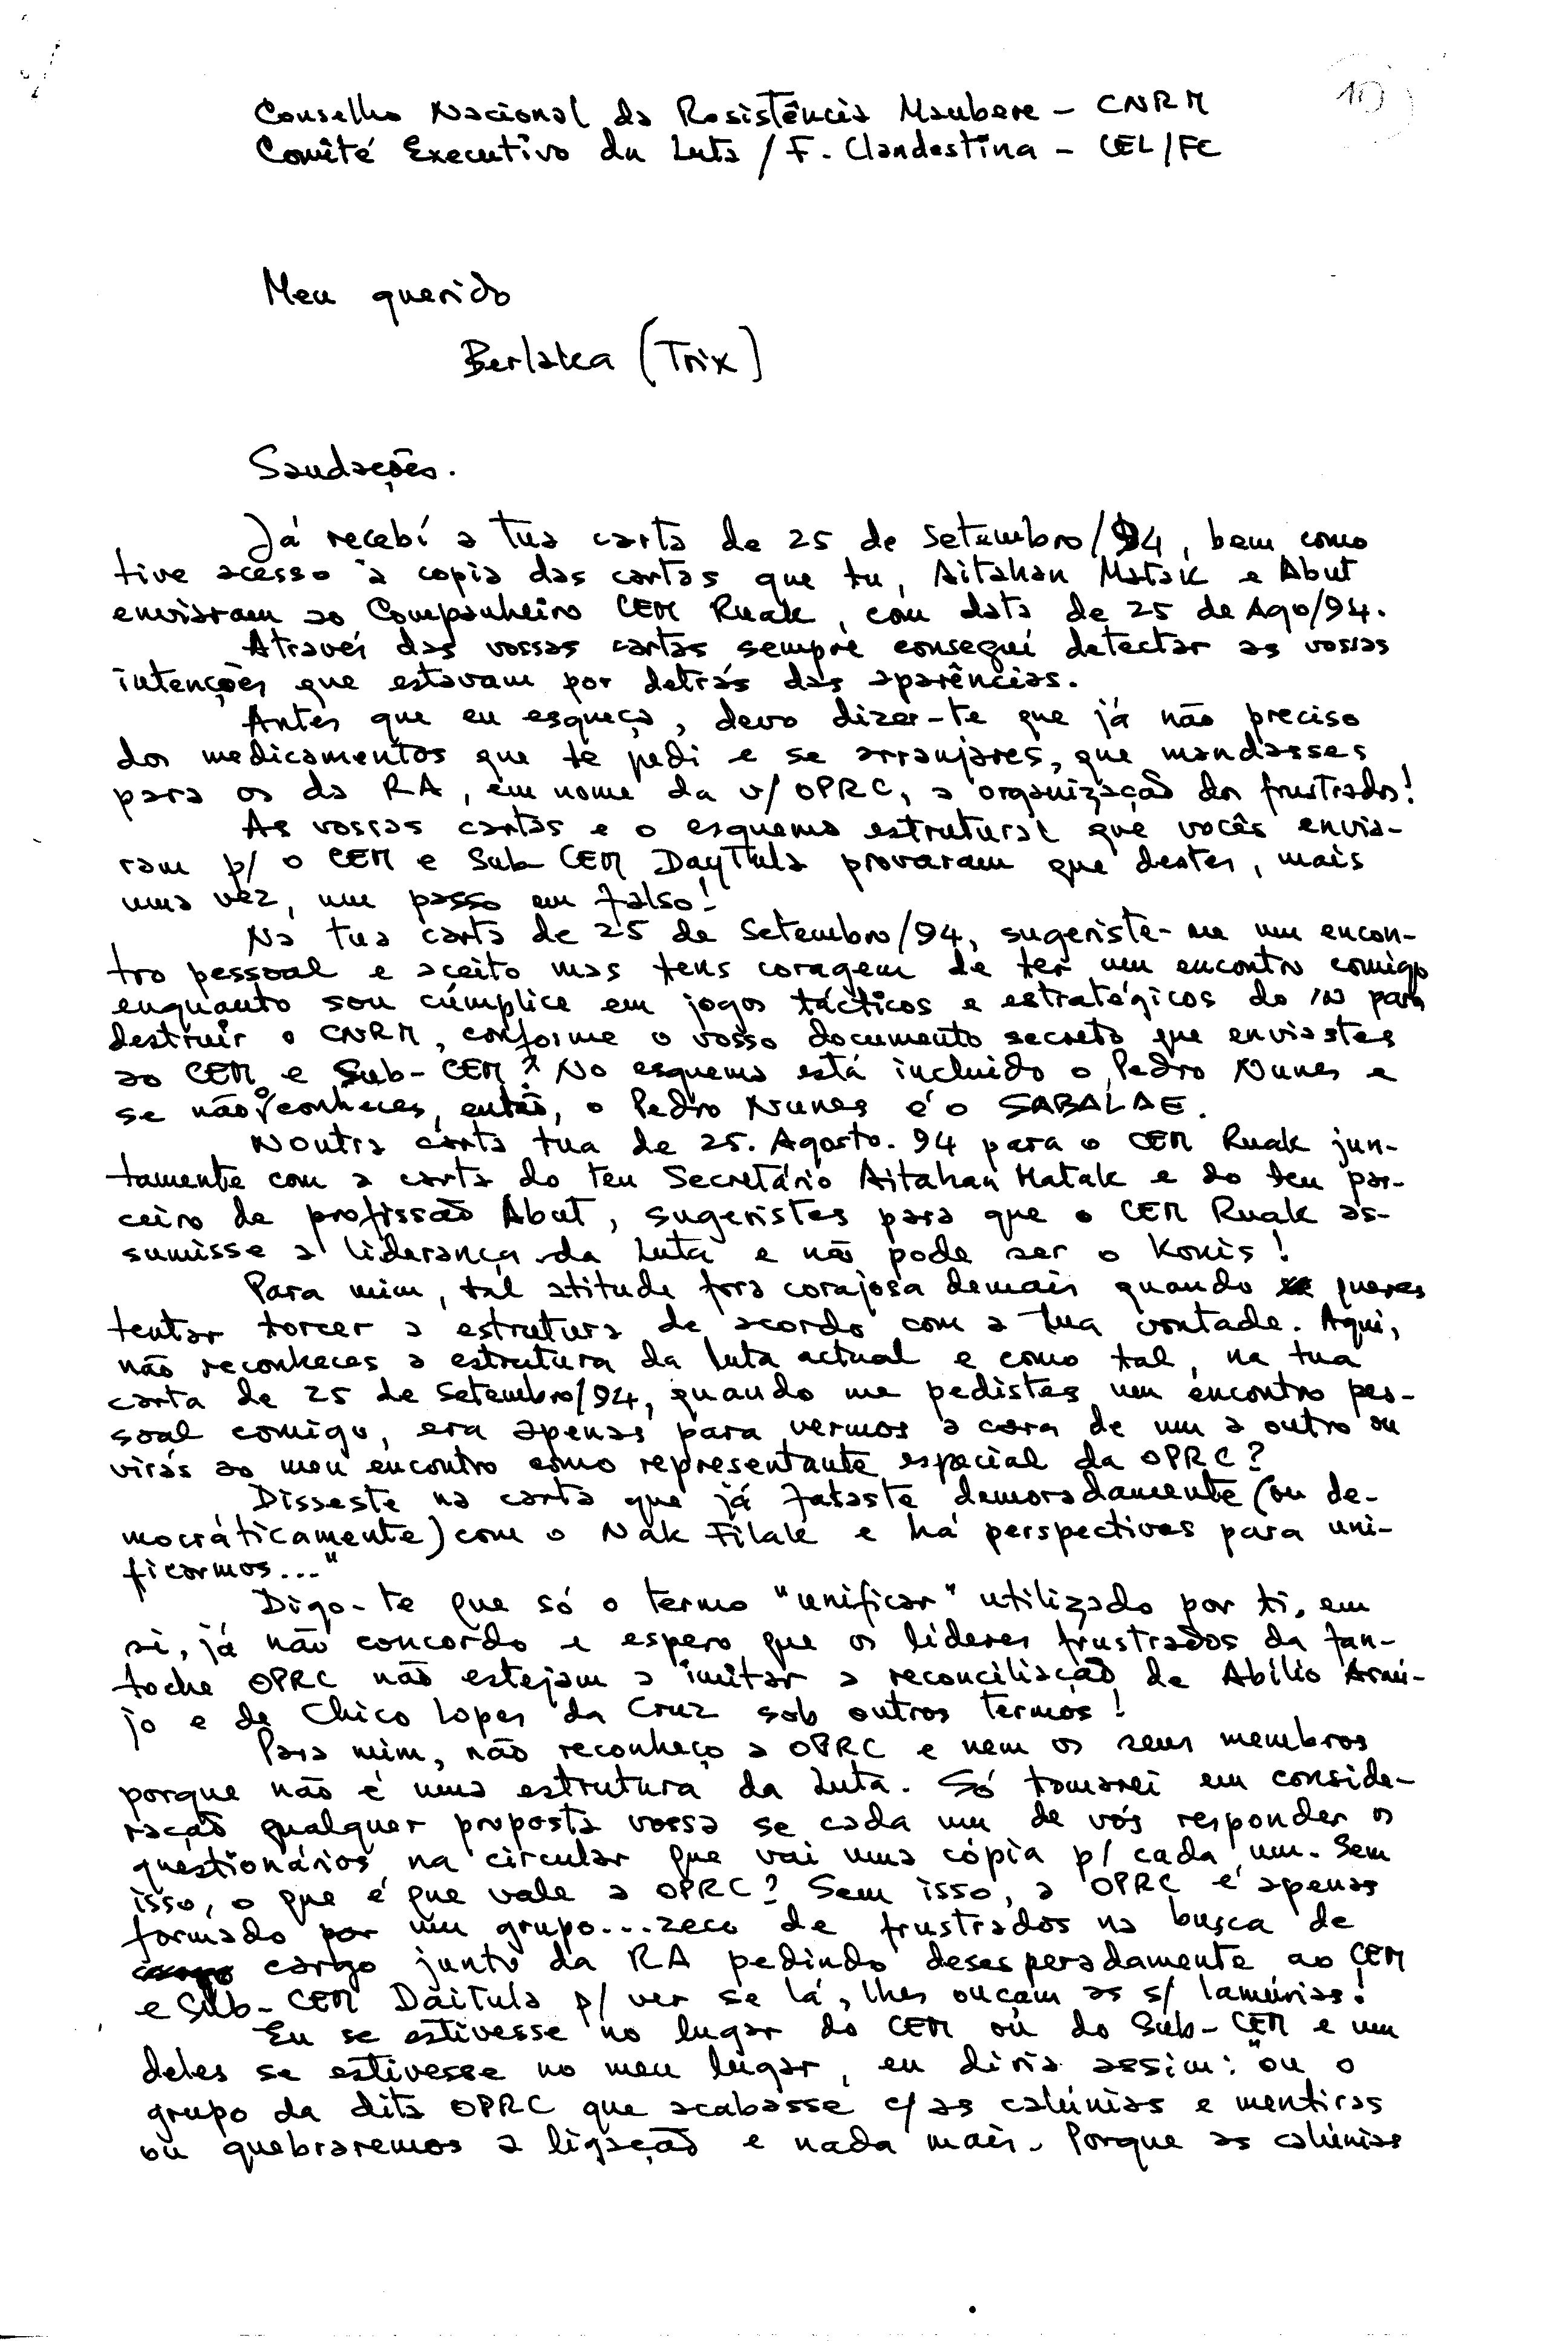 10
Conselho Nacional da Resistência Maubere - CNRM
Comité Executivo da Luta / F. Clandestina - CEL/FC
Meu querido
Berlaka (Trix)
Saudações.
Já recebí a tua carta de 25 de Setembro/94, bem como
tive acesso à copia das cartas que tu, Aitahan Matak e Abut
enviaram ao Companheiro CEM Ruak, com data de 25 de Ago/94.
Através das vossas cartas sempre consegui detectar as vossas
intenções que estavam por detrás das aparências.
Antes que eu esqueça, devo dizer-te que já não preciso
dos medicamentos que te pedi e se arranjares, que mandasses
para os da RA, em nome da v/ OPRC, a organização dos frustrados!
As vossas cartas e o esquema estrutural que vocês envia-
ram p/ o CEM e Sub CEM DayTula provaram que destes, mais
uma vez, um passo em falso!
Na tua carta de 25 de Setembro/94, sugeriste-me um encon-
tro pessoal e aceito mas tens coragem de ter um encontro comigo
enquanto sou cúmplice em jogos tácticos e estratégicos do IN para
destruir o CNRM, conforme o vosso documento secreto que enviastes
ao CEM e Sub-CEM? No esquema está incluido o Pedro Nunes e
se não o conheces, então, o Pedro Nunes é o SABALAE.
Noutra carta tua de 25. Agosto. 94 para o CEM Ruak jun-
tamente com a carta do teu Secretário Aitahan Matak e do teu par-
ceiro de profissão Abut, sugeristes para que o CEM Ruak as-
sumisse a liderança da Luta e não pode ser o Konis!
Para mim, tal atitude fora corajosa demais quando queres
tentar torcer a estrutura de acordo com a tua vontade. Aqui,
não reconheces a estrutura da luta actual e como tal, na tua
carta de 25 de Setembro/94, quando me pedistes um encontro pes-
soal comigo, era apenas para vermos a cara de um a outro ou
virás ao meu encontro como representante especial da OPRC?
Disseste na carta que já falaste demoradamente (ou de-
mocráticamente) com o Nak Filak e há perspectivas para uni-
ficarmos..."
Digo-te que só o termo "unificar" utilizado por ti, em
si, já não concordo e espero que os líderes frustrados da fan-
toche OPRC não estejam a imitar a reconciliação de Abílio Araú-
jo e de Chico Lopes da Cruz sob outros termos!
Para mim, não reconheço a OPRC e nem os seus membros
porque não é uma estrutura da Luta. Só tomarei em conside-
ração qualquer proposta vossa se cada um de vós responder os
questionários na circular que vai uma cópia p/ cada um. Sem
isso, o que é que vale a OPRC? Sem isso, a OPRC é apenas
formado por um grupo...zeco de frustrados na busca de
cargo junto da RA pedindo desesperadamente ao CEM
e Sub-CEM Daitula p/ ver se lá, lhes ouçam as s/ lamúrias!
Eu se estivesse no lugar do CEM ou do Sub-CEM e um
deles se estivesse no meu lugar, eu diria assim: "ou o
grupo da dita OPRC que acabasse c/ as calúnias e mentiras
ou quebraremos a ligação e nada mais. Porque as calúnias